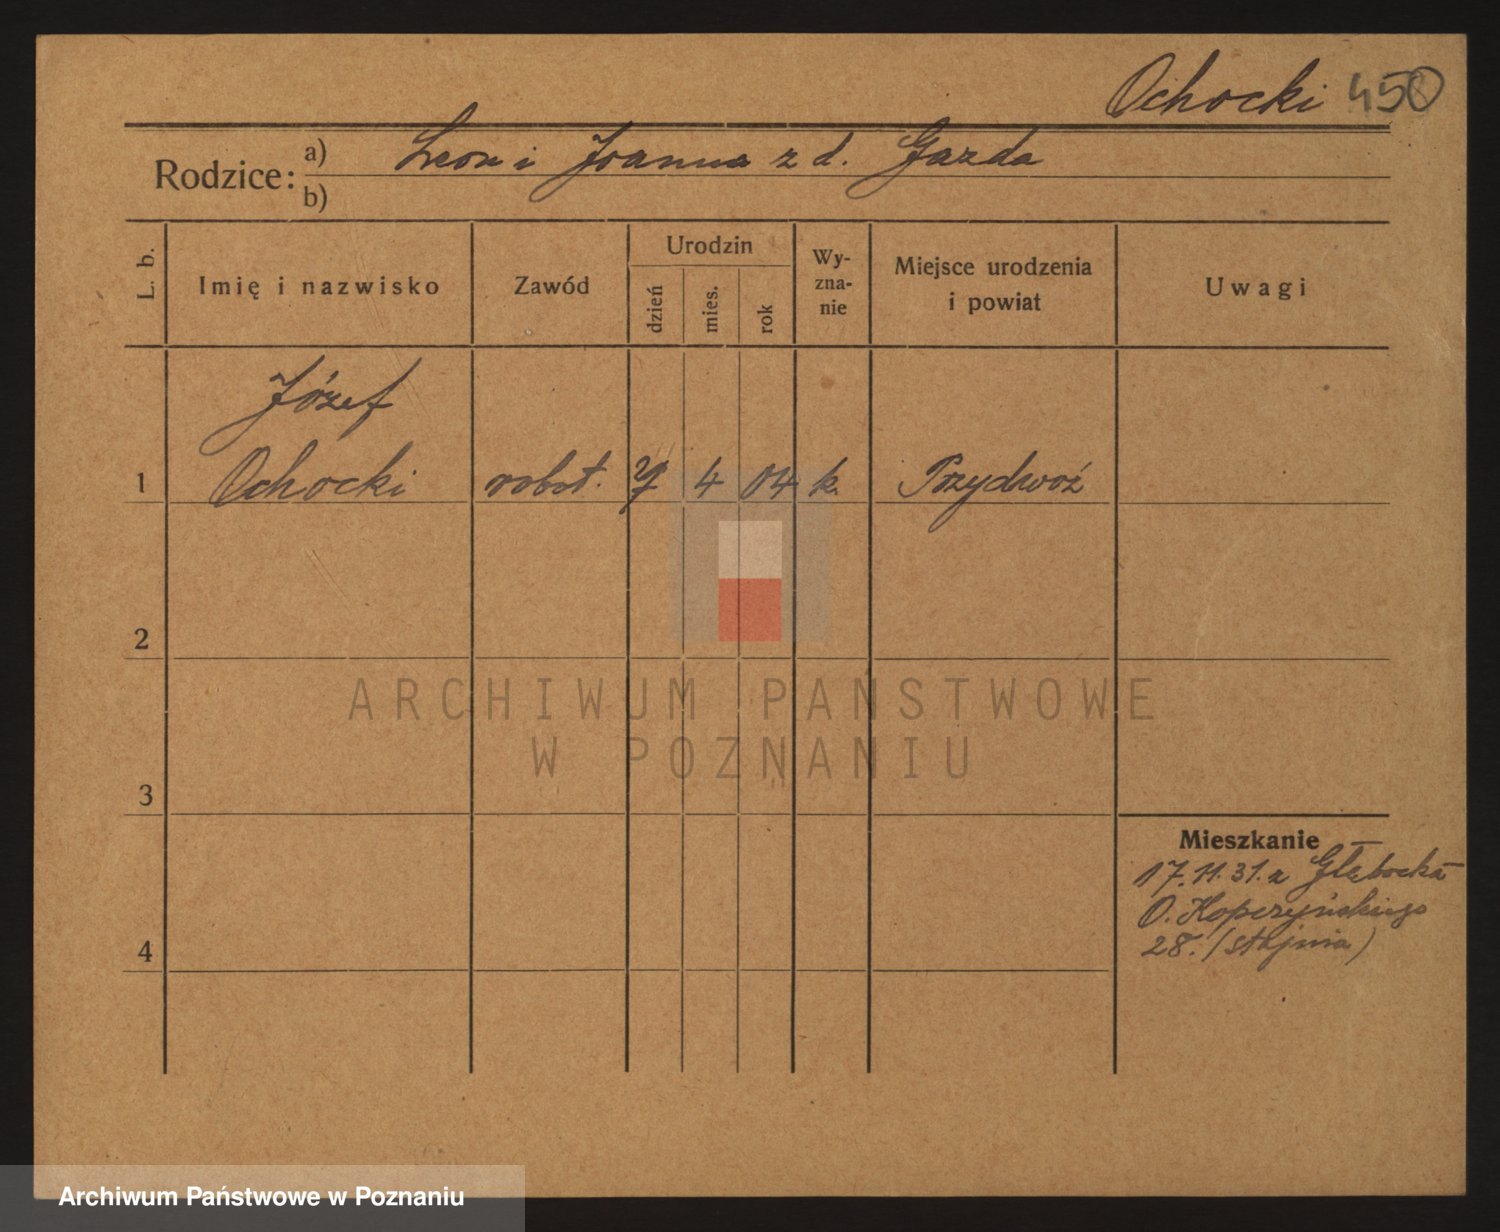 Ochocki 450
Rodzice: a) Leon i Joanna z d. Gazda
b)
L. b.
Imię i nazwisko
Zawód
Urodzin
dzień
mies.
rok
Wy-
zna-
nie
Miejsce urodzenia
i powiat
Uwagi
Józef
1 Ochocki robot. 7 4 04 k. Przydwóż
2
ARCHIWUM PAŃSTWOWE
W POZNANIU
3
Mieszkanie
17.11.31. z Głębocka
O. Kopczyńskiego
4
28. (stajnia)
Archiwum Państwowe w Poznaniu